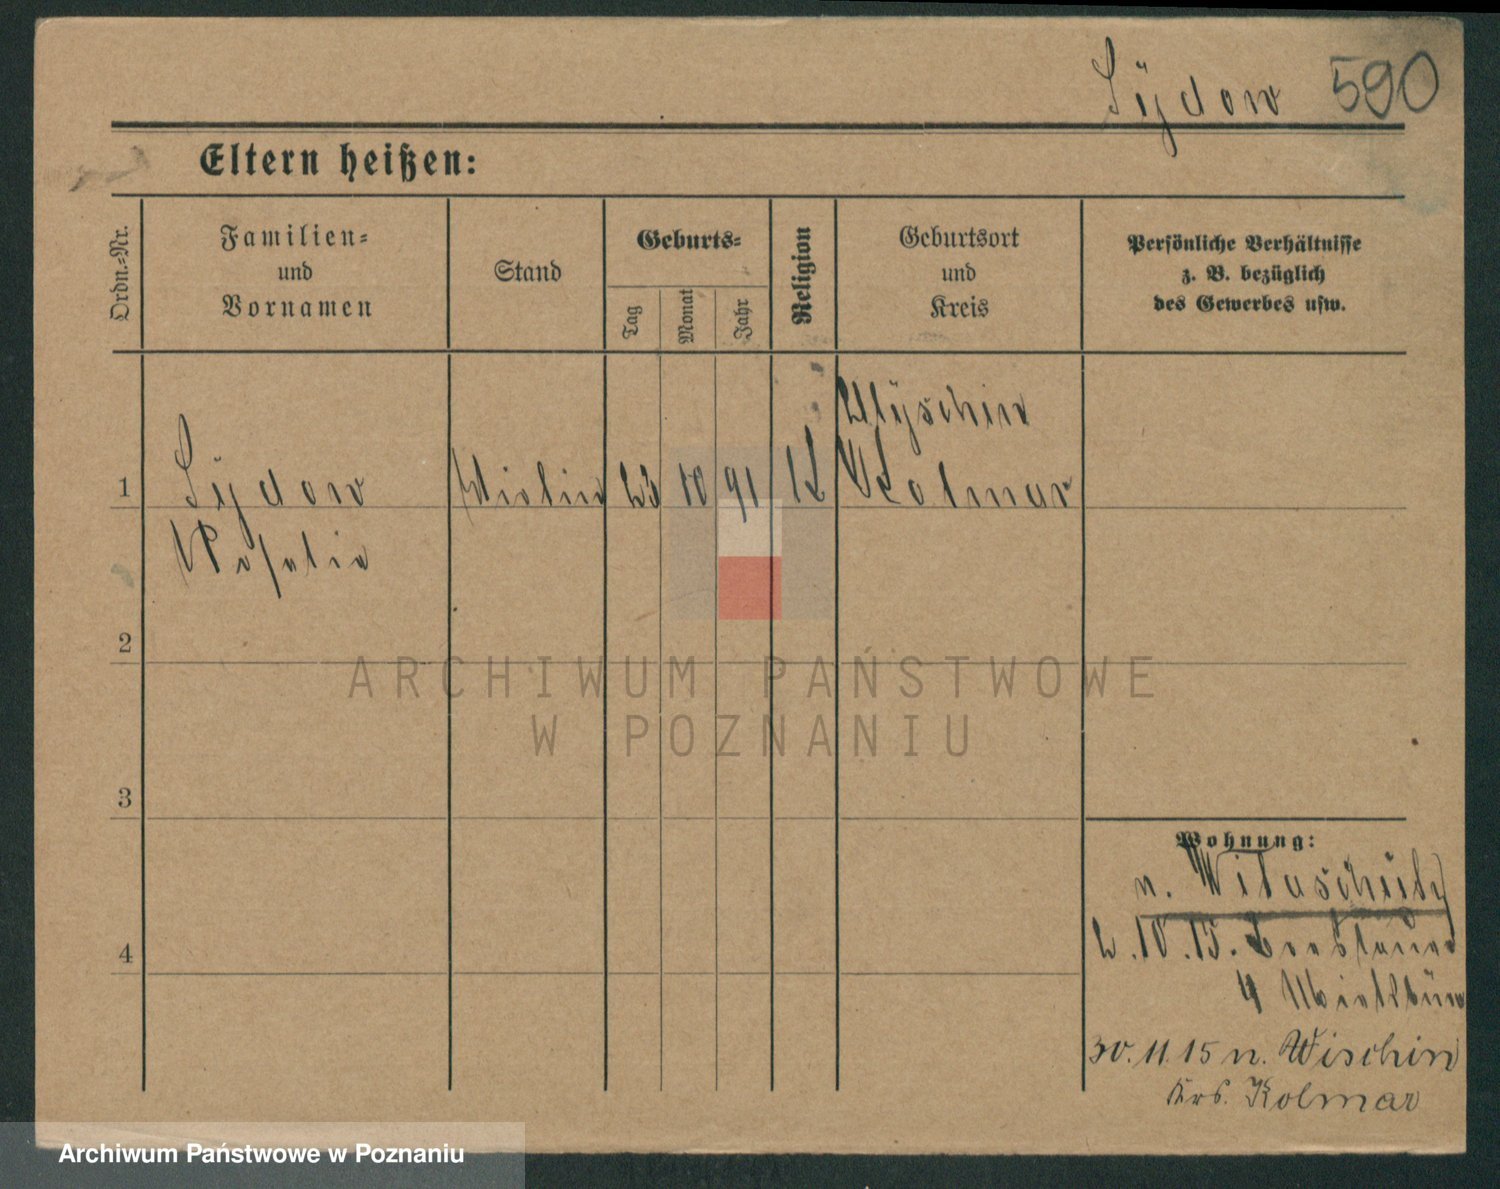 Sÿdow 590
Eltern heißen:
Ordn.-Nr.
Familien-
und
Vornamen
Stand
Geburts-
Tag
Monat
Jahr
Religion
Geburtsort
und
Kreis
Persönliche Verhältnisse
z. B. bezüglich
des Gewerbes usw.
1 Sÿdow 23 10 91 K Kolmar
Rosalie
2
3
4
Wohnung:
n. Witaschütz
2.10.15.
4
30.11.15 n. Wischin
Krs. Kolmar
ARCHIWUM PAŃSTWOWE
W POZNANIU
Archiwum Państwowe w Poznaniu